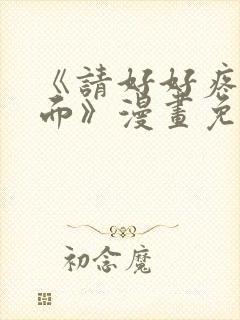 《請好好疼
而》漫畫免
初念魔